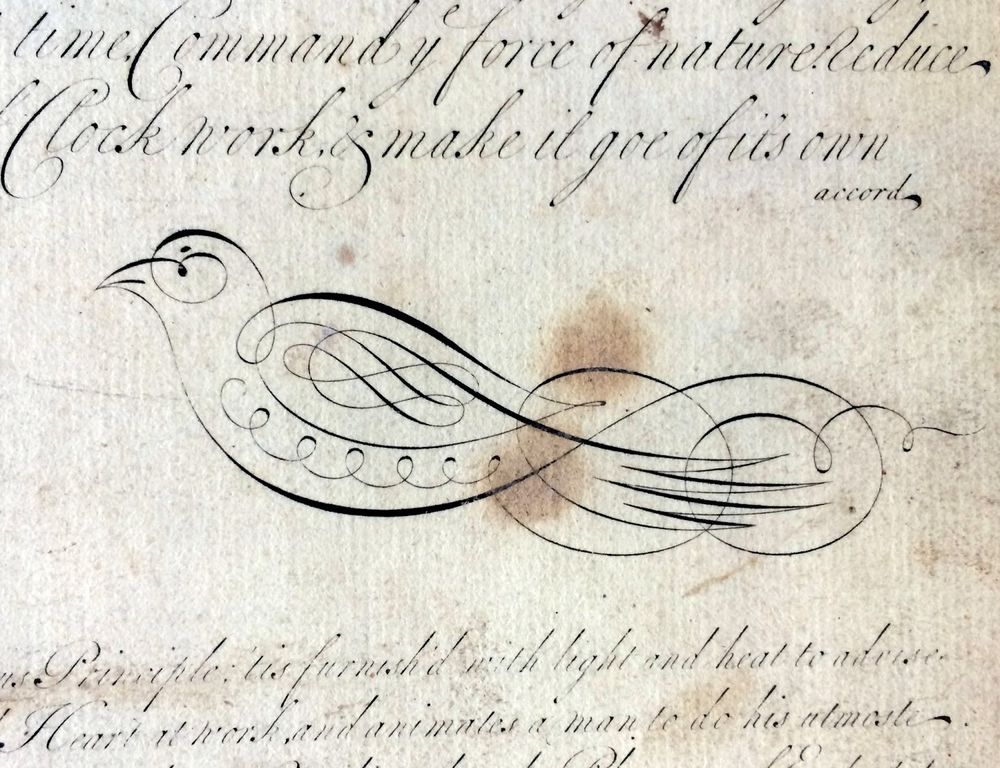 time, Command yᵉ force of nature. Reduce
Clock work, & make it goe of it's own
accord,
Principle, 'tis furnish'd with light and heat to advise
Heart at work, and animates a man to do his utmoste.